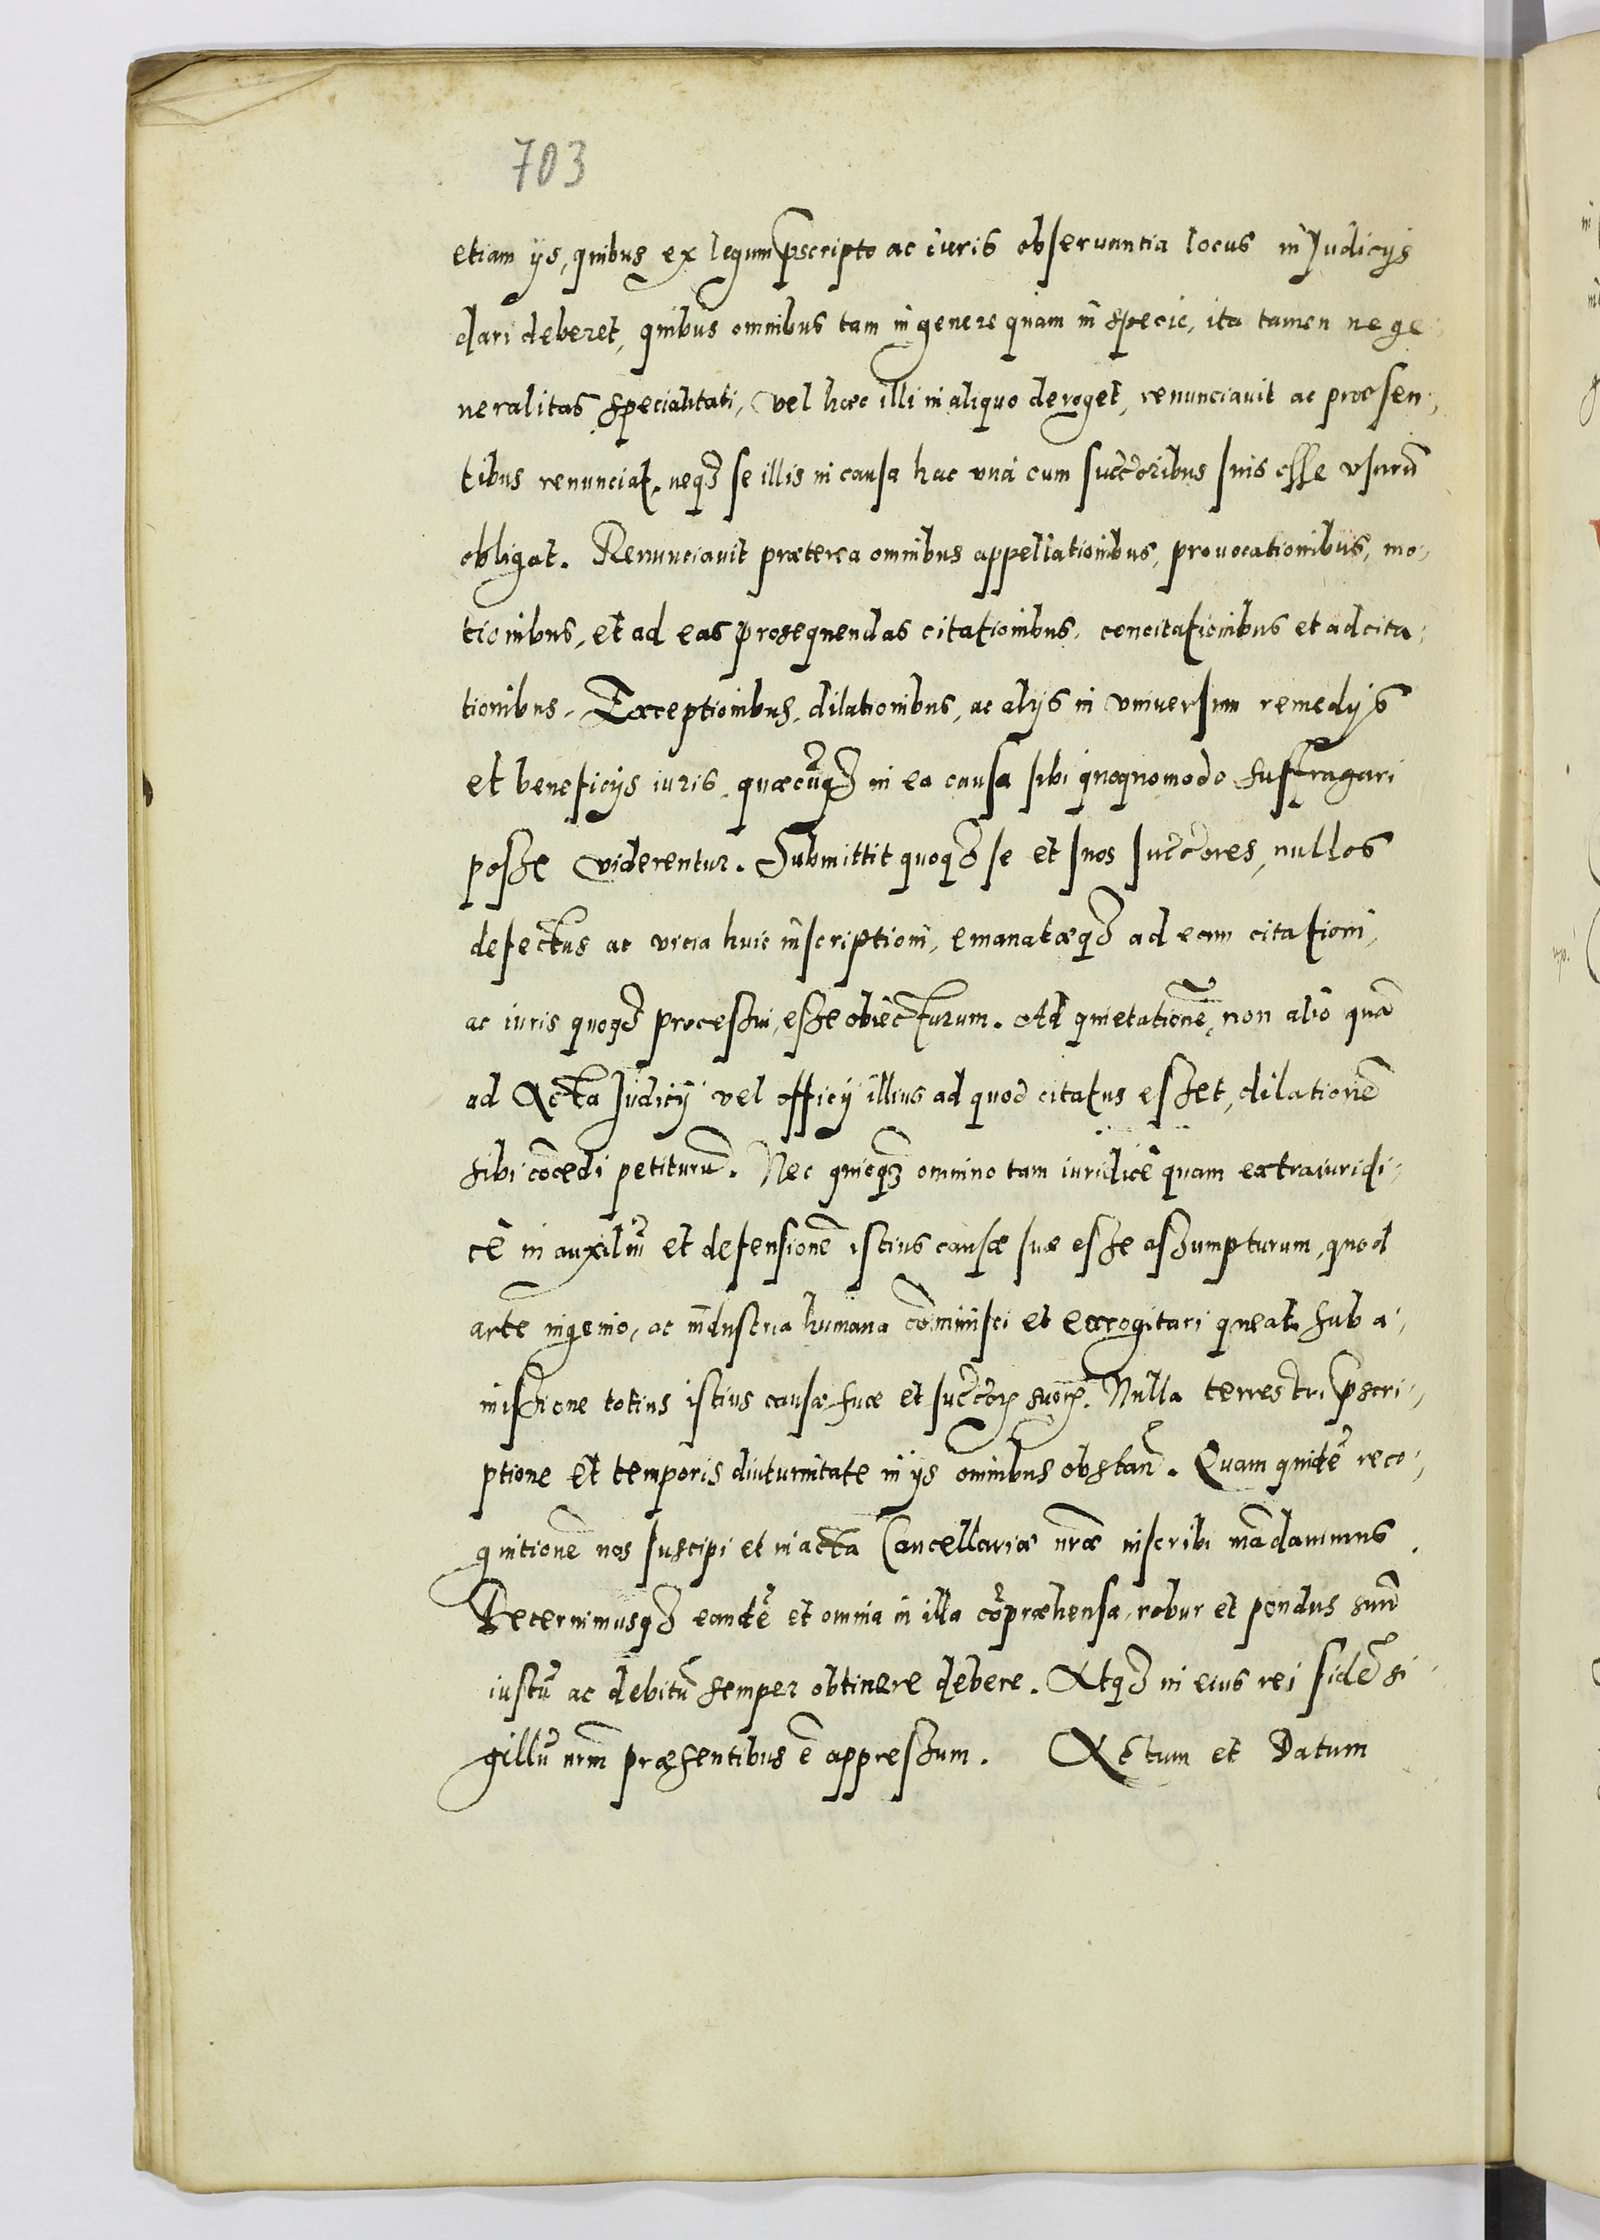 703
etiam ijs, quibus ex legum pscripto ac iuris obseruantia locus in Judicijs
dari deberet, quibus omnibus tam in genere quam in specie, ita tamen ne ge,
neralitas specialitati, vel haec illi in aliquo deroget, renunciauit ac praesen,
tibus renunciat, neqз se illis in causa hac vna cum succoribus suis esse vsurũ
obligat. Renunciauit praeterea omnibus appellationibus, prouocationibus, mo,
tionibus, et ad eas prosequendas citationibus, concitationibus et adcita,
tionibus, Exceptionibus, dilationibus, ac alijs in vniuersum remedijs
et beneficijs iuris, quaecũqз in ea causa sibi quoquomodo suffragari
posse viderentur. Submittit quoqз se et suos succores, nullos
defectus ac vicia huic inscriptioni, emanataeqз ad eam citationi,
ac iuris quoqз processui, esse obiecturum. Ad quietationẽ, non alio quã
ad Acta Judicij vel officij illius ad quod citatus esset, dilationẽ
sibi cõcedi petiturũ. Nec quicqз omnino tam iuridicê quam extraiuridi,
cê in auxiliũ et defensionẽ istius causae suae esse assumpturum, quod
arte ingenio, ac industria humana cõminisci et excogitari queat, sub a,
missione totius istius causae suae et succorꝝ suorꝝ. Nulla terrestri pscri,
ptione et temporis diuturnitate in ijs omnibus obstañ. Quam quidẽ reco,
gnitionẽ nos suscipi et in acta Cancellariae nrae inscribi mãdauimus.
Decernimusqз eandẽ et omnia in illa cõpraehensa, robur et pondus suũ
iustũ ac debitũ semper obtinere debere. Atqз in eius rei fidẽ si,
gillũ nrm praesentibus ẽ appressum. Actum et Datum